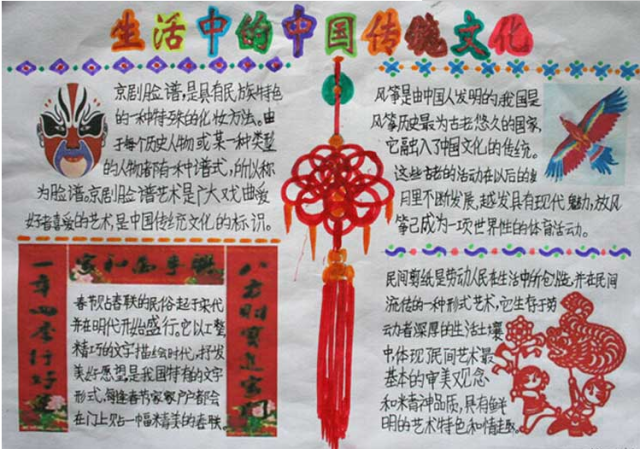 生活中的中国传统文化
京剧脸谱,是具有民族特色
的一种特殊的化妆方法。由
于每个历史人物或某一种类型
的人物都有一种谱式,所以称
为脸谱。京剧脸谱艺术是广大戏曲爱
好者喜爱的艺术,是中国传统文化的标识。
风筝是由中国人发明的,我国是
风筝历史最为古老悠久的国家,
它融入了中国文化的传统。
这些古老的活动在以后的岁
月里不断发展,越发具有现代魅力,放风
筝已成为一项世界性的体育活动。
家和萬事
一年四季行好
八方財寶進家
春节贴春联的民俗起于宋代
并在明代开始盛行,它以工整
精巧的文字描绘时代,抒发
美好愿望,是我国特有的文字
形式,每逢春节家家户户都会
在门上贴一幅精美的春联。
民间剪纸是劳动人民在生活中所创造,并在民间
流传的一种形式艺术,它生存于劳
动者深厚的生活土壤
中体现了民间艺术最
基本的审美观念
和精神品质,具有鲜
明的艺术特色和情趣。